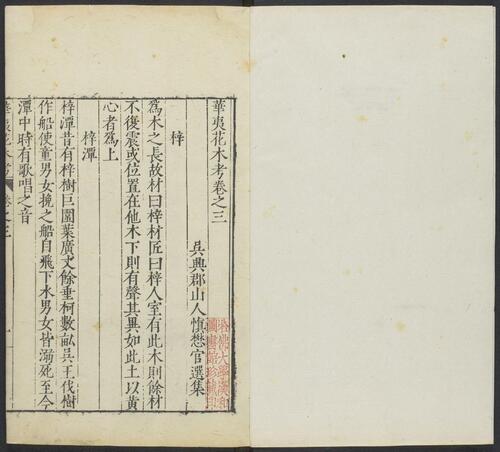 華夷花木考卷之三
吳興郡山人慎懋官選集
梓
為木之長故材曰梓材匠曰梓人室有此木則餘材
不復震或位置在他木下則有聲其異如此土以黄
心者為上
梓潭
梓潭昔有梓樹巨圍葉廣丈餘垂柯數畝吳王伐樹
作船使童男女挽之船自飛下水男女皆溺死至今
潭中時有歌唱之音
華夷花木考
卷之三
一
哈佛大學漢和
圖書館珍藏印